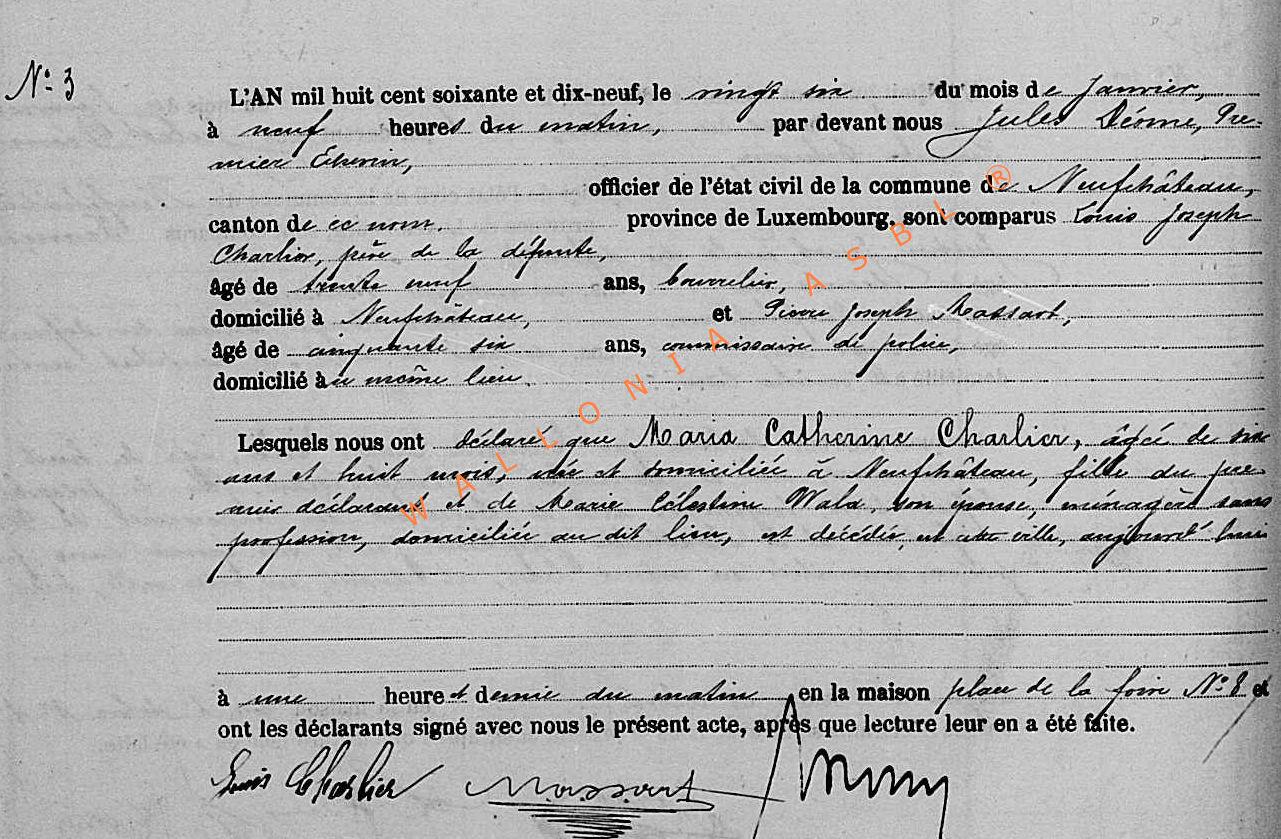 N° 3
L'AN mil huit cent soixante et dix-neuf, le vingt six du mois de Janvier,
à neuf heures du matin, par devant nous Jules Déome, Pre-
mier Echevin,
officier de l'état civil de la commune de Neufchâteau,
canton de ce nom. province de Luxembourg, sont comparus Louis Joseph
Charlier, père de la défunte,
âgé de trente neuf ans, bourrelier,
domicilié à Neufchâteau, et Pierre Joseph Massart,
âgé de cinquante six ans, commissaire de police,
domicilié àu même lieu.
Lesquels nous ont déclaré que Maria Catherine Charlier, âgée de six
ans et huit mois, née et domiciliée à Neufchâteau, fille du pre-
mier déclarant et de Marie Célestine Wala, son épouse, ménagère sans
profession, domiciliée au dit lieu, est décédée, en cette ville, aujourd'hui
à une heure et demie du matin en la maison place de la foire N° 8 et
ont les déclarants signé avec nous le présent acte, après que lecture leur en a été faite.
Louis Charlier Massart
WALLONIA ASBL ®